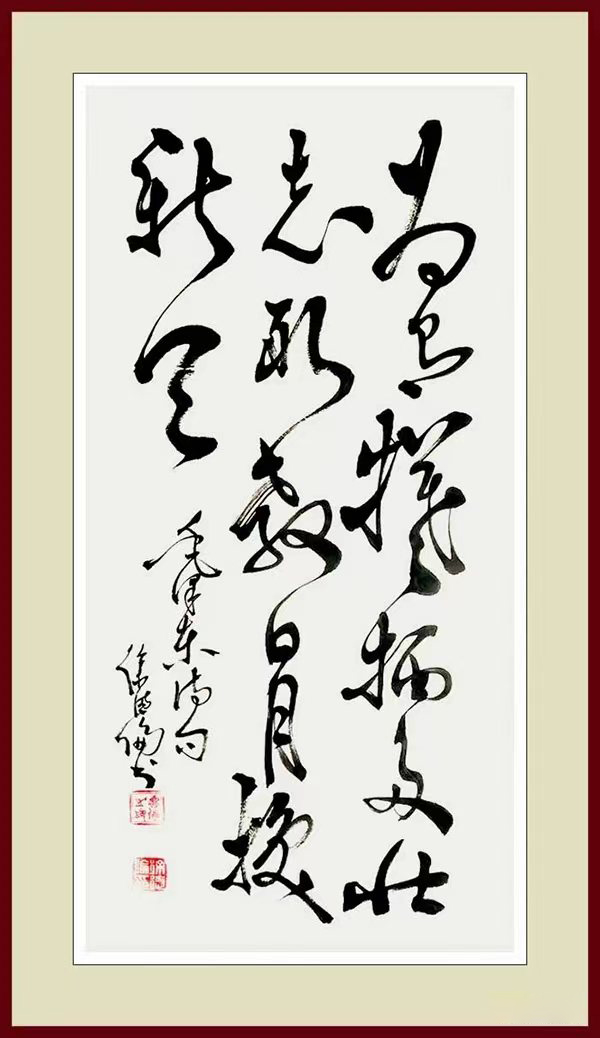 为有牺牲多壮
志敢教日月换
新天
毛泽东诗句
徐德 书